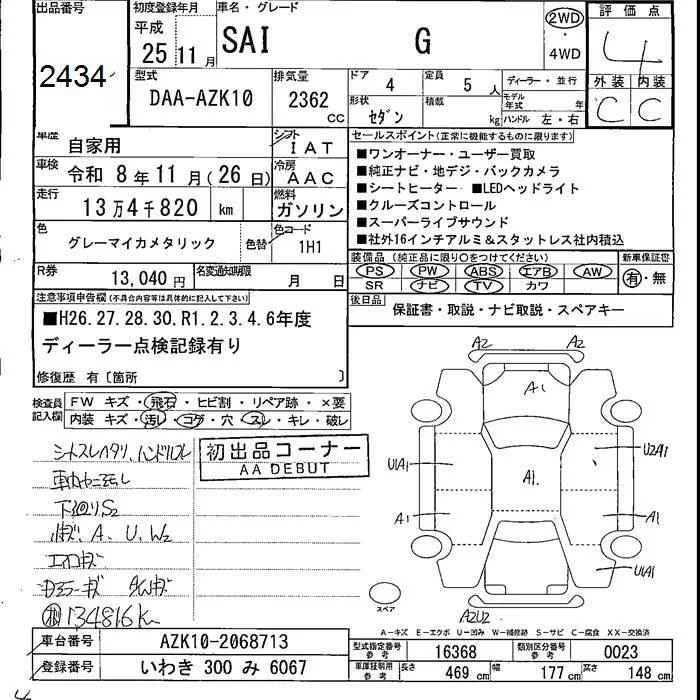 出品番号
2434
初度登録年月
平成
25 11 月
車名・グレード
SAI G
2WD
・
4WD
評価点
4
外装 内装
C C
型式
DAA-AZK10
排気量
2362 CC
ドア 4
定員 5 人
ディーラー・並行
形状 セダン
積載 kg
モデル年式 年
ハンドル 左・右
車歴 自家用
シフト IAT
車検 令和 8 年 11 月 (26 日)
冷房 AAC
走行 13 万 4 千 820 km
燃料 ガソリン
色 グレーマイカメタリック
色替
色コード 1H1
R券 13,040 円
名変通知期限 月 日
セールスポイント(正常に機能するものに限ります)
■ワンオーナー・ユーザー買取
■純正ナビ・地デジ・バックカメラ
■シートヒーター ■LEDヘッドライト
■クルーズコントロール
■スーパーライブサウンド
■社外16インチアルミ&スタットレス社内積込
装備品 (純正品に限り○をつけてください)
新車保証書
PS PW ABS エアB AW
SR ナビ TV カワ
有・無
後日品 保証書・取説・ナビ取説・スペアキー
注意事項申告欄(不具合内容等は具体的に記入して下さい)
■H26.27.28.30.R1.2.3.4.6年度
ディーラー点検記録有り
修復歴 有〔箇所 〕
検査員記入欄
FW キズ・飛石・ヒビ割・リペア跡・×要
内装 キズ・汚レ・コゲ・穴・スレ・キレ・破レ
初出品コーナー
AA DEBUT
シートスレヘタリ、ハンドルスレ
下廻りS2
A、U、W2
134816km
A2 A2
A1
U1A1 U2A1
A1.
A1 A1
U1A1
A2U2
スペア
A-キズ E-エクボ U-凹み W-補修跡 S-サビ C-腐食 XX-交換済
車台番号 AZK10-2068713
登録番号 いわき 300 み 6067
型式指定番号 参考 16368
類別区分番号 参考 0023
車庫証明用 参考 長さ 469 cm 幅 177 cm 高さ 148 cm